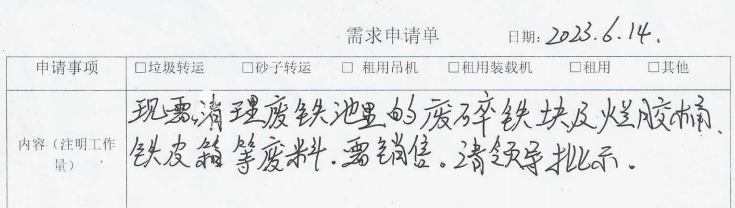 需求申请单 日期：2023.6.14.
申请事项 □垃圾转运 □砂子转运 □ 租用吊机 □租用装载机 □租用 □其他
内容（注明工作量）
现需清理废铁池里的废碎铁块及烂胶桶、
铁皮箱等废料.需销售。请领导批示.